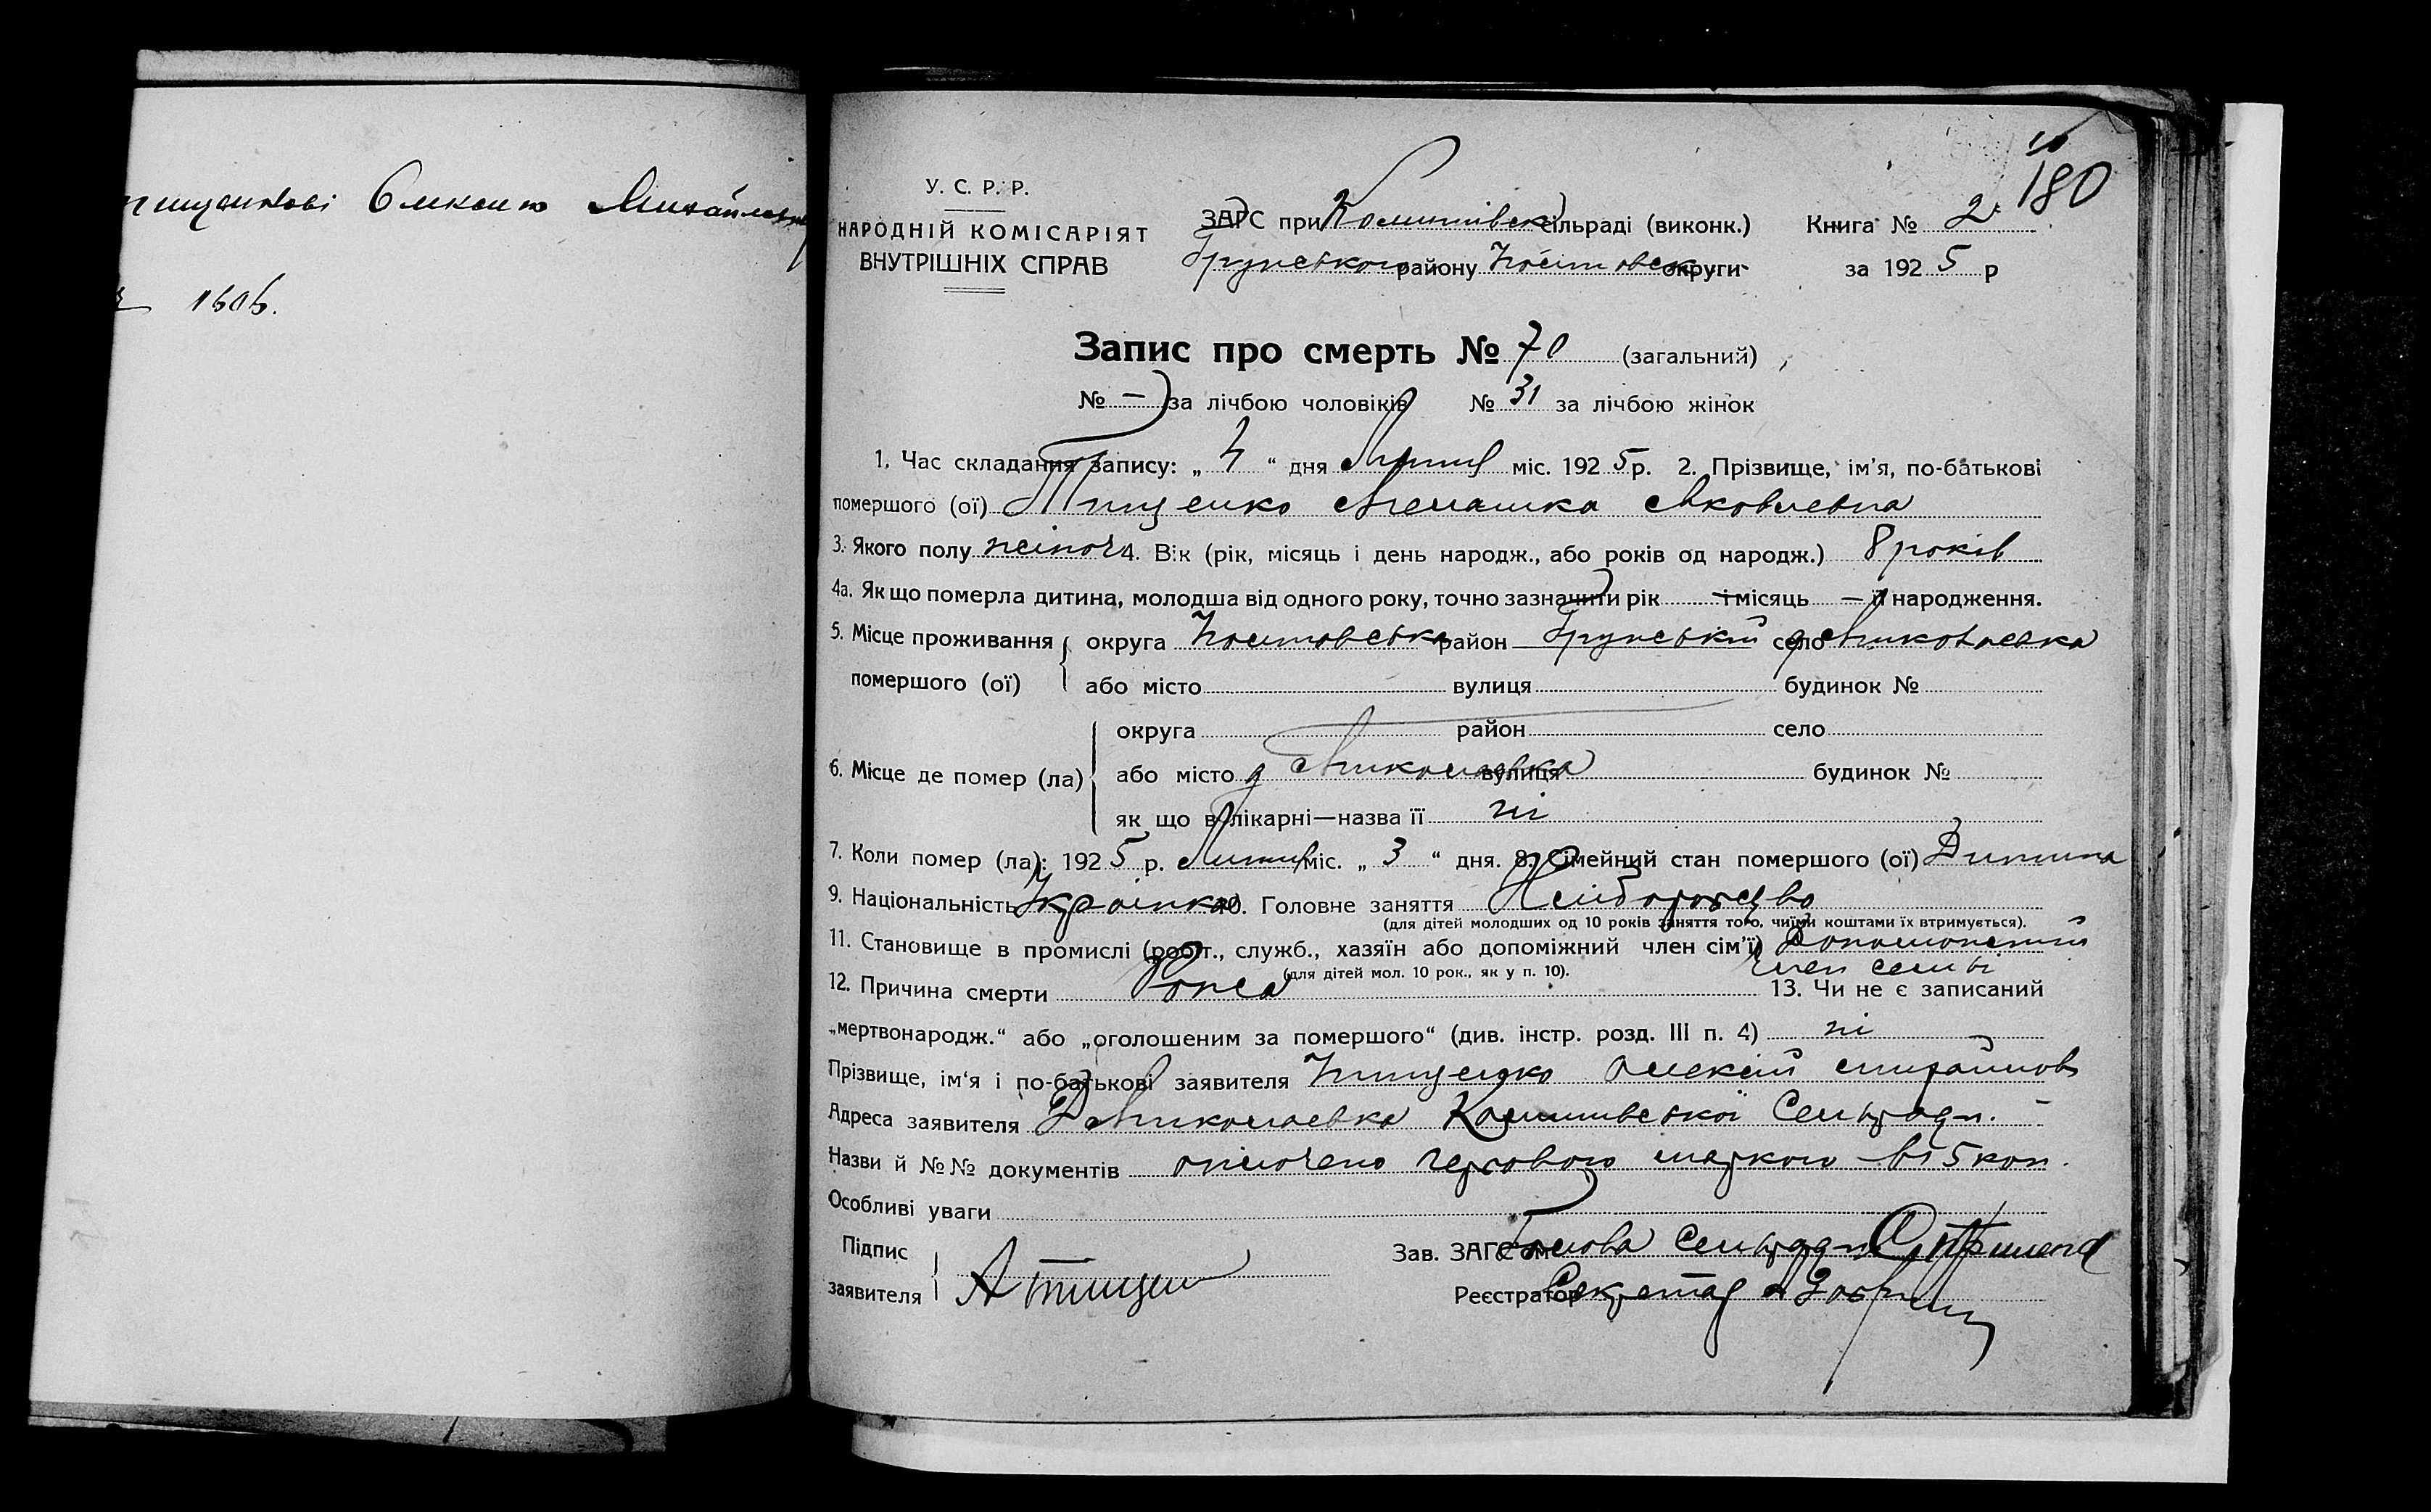 Михайлов
1606.
10
180
У. С. Р. Р.
НАРОДНІЙ КОМІСАРІЯТ
ВНУТРІШНІХ СПРАВ
ЗАГС при сільраді (виконк.) Книга № 2
Грунського району округи за 1925 р
Запис про смерть № 70 (загальний)
№ — за лічбою чоловіків № 31 за лічбою жінок
1. Час складання запису: „ 4 “ дня міс. 1925 р. 2. Прізвище, ім’я, по-батькові
помершого (ої) Тищенко Яковлевна
3. Якого полу жіноч 4. Вік (рік, місяць і день народж., або років од народж.) 8 років
4а. Як що померла дитина, молодша від одного року, точно зазначити рік і місяць — її народження.
5. Місце проживання округа район Грунський село д Николаевка
помершого (ої) або місто вулиця будинок №
округа район село
6. Місце де помер (ла) або місто д Николаевка вулиця будинок №
як що в лікарні—назва її ні
7. Коли помер (ла): 1925 р. міс. „ 3 “ дня. 8. Сімейний стан помершого (ої) Дитина
9. Національність Українка 10. Головне заняття Хліборобство
(для дітей молодших од 10 років заняття того, чиїми коштами їх втримується).
11. Становище в промислі (робіт., служб., хазяїн або допоміжний член сім’ї) Допоможний
член семьі
(для дітей мол. 10 рок., як у п. 10).
12. Причина смерти Рожа 13. Чи не є записаний
„мертвонародж.“ або „оголошеним за помершого“ (див. інстр. розд. III п. 4) ні
Прізвище, ім‘я і по-батькові заявителя Тищенко Олексій Михайлов
Адреса заявителя Д Николаевка Сельради.
Назви й №№ документів оплочено гербового маркою в 15 коп.
Особливі уваги
Підпис
заявителя А Тищен
Зав. ЗАГС’ом Голова Сельради
Реєстратор Секретар